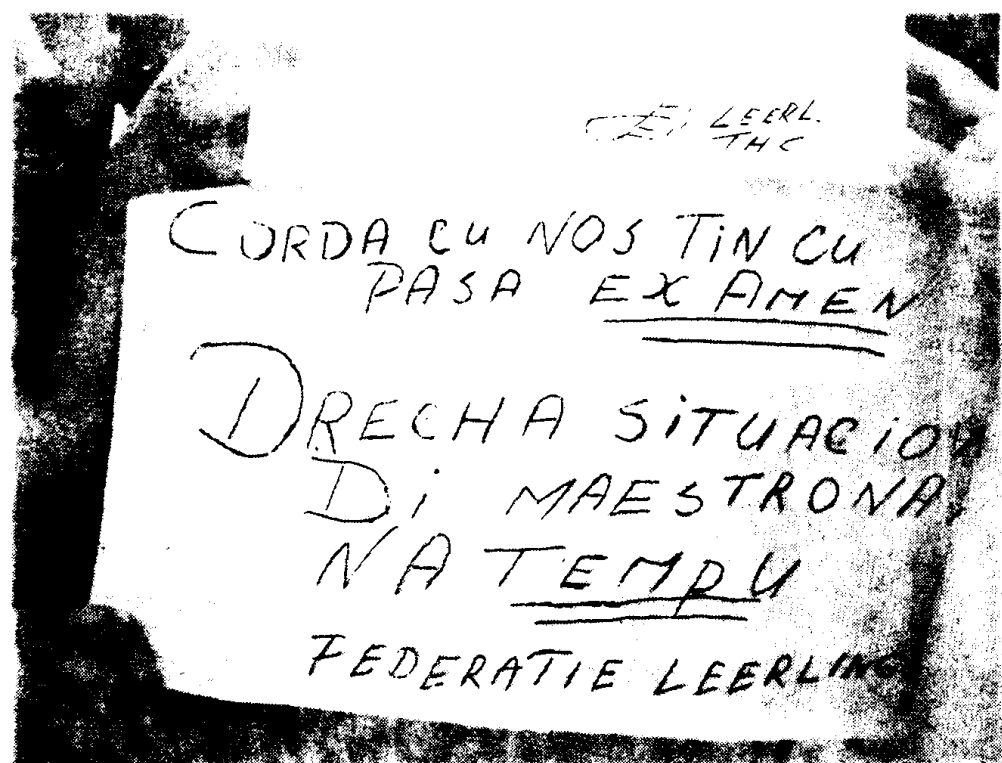 LEERL.
THC
CORDA CU NOS TIN CU
PASA EXAMEN
DRECHA SITUACION
DI MAESTRONA,
NA TEMPU
FEDERATIE LEERLING